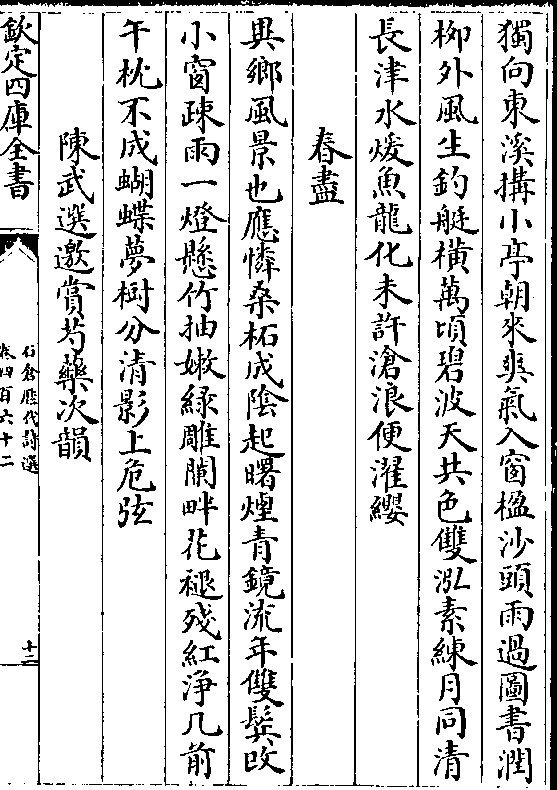 獨向東溪搆小亭朝來爽氣入窗櫺沙頭雨過圖書潤
柳外風生釣艇橫萬頃碧波天共色雙泓素練月同清
長津水煖魚龍化未許滄浪便濯纓
春盡
異鄉風景也應憐桑柘成陰起曙煙青鏡流年雙鬂改
小窗疎雨一燈懸竹抽嫩綠雕闌畔花褪殘紅淨几前
午枕不成蝴蝶夢樹分清影上危弦
陳武選邀賞芍藥次韻
欽定四庫全書
石倉歷代詩選
卷四百六十二
十二